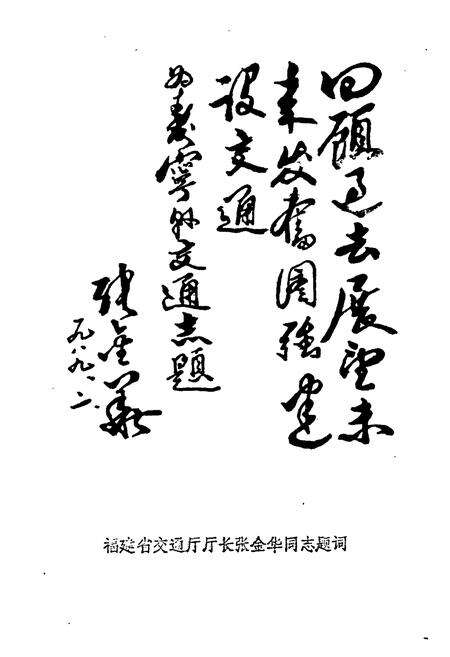 回顾过去展望未
来发奋图强建
设交通
为寿宁县交通志题
张金华
一九八九.一.二
福建省交通厅厅长张金华同志题词